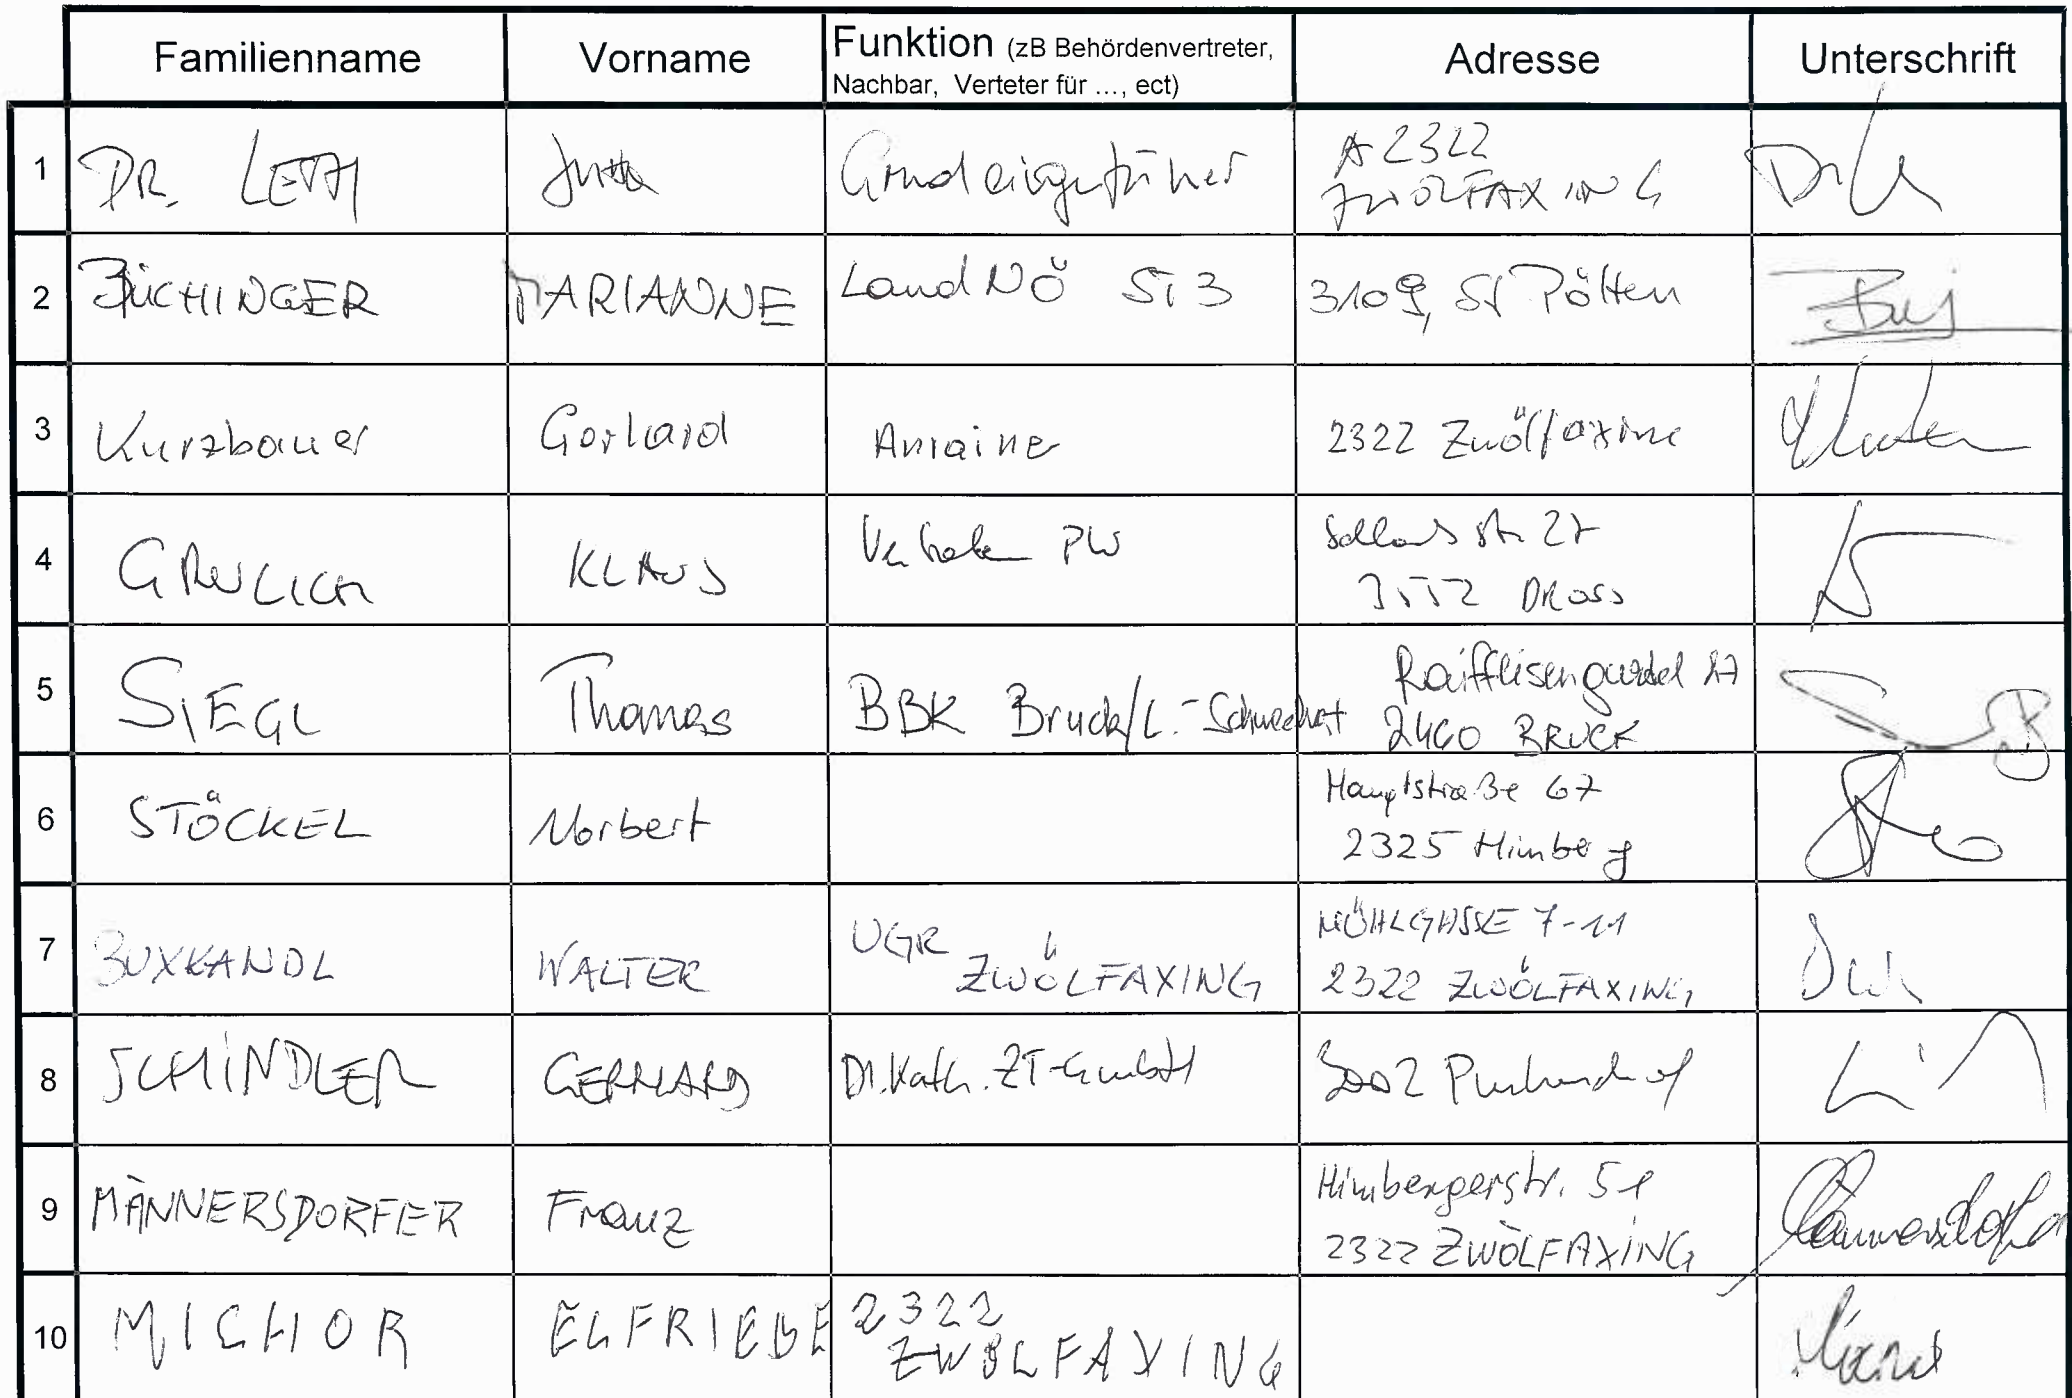 Familienname Vorname Funktion (zB Behördenvertreter, Adresse Unterschrift
Nachbar, Verteter für ..., ect)
1 DR. LETH Jutta A 2322
ZWÖLFAXING
2 BÜCHINGER MARIANNE Land NÖ ST3 3109, St Pölten
3 Kurzbauer Gerhard Anrainer 2322 Zwölfaxing
4 GREULICH KLAUS PW str. 27
3552 DROSS
5 SIEGL Thomas BBK Bruck/L.-Schwechat Raiffeisengürtel 27
2460 BRUCK
6 STÖCKEL Norbert Hauptstraße 67
2325 Himberg
7 BUXKANDL WALTER UGR ZWÖLFAXING MÜHLGASSE 7-11
2322 ZWÖLFAXING
8 SCHINDLER GERHARD ZT-GmbH 3002 Purkersdorf
9 MÄNNERSDORFER Franz Himbergerstr. 51
2322 ZWÖLFAXING
10 MICHOR ELFRIEDE 2322
ZWÖLFAXING